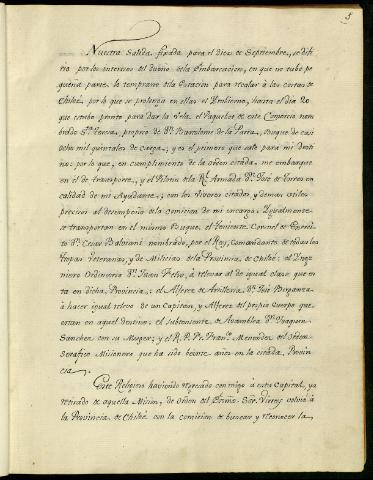 5
Nuestra Salida fixada para el Diez de Septiembre, se difi-
rió por los intereses del Dueño de la Embarcacion, en que no tubo pe-
queña parte lo temprano de la Estacion para recalar à las costas de
Chiloé por lo que se prolonga en ellas el Imbierno, hasta el dia 20
que estubo pronto para dar la Vela el Paquebot de este Comercio nom-
brado Sta. Teresa, proprio de Dn. Bartolomé de la Parra, Buque de casi
ocho mil quintales de Carga, y es el primero que sale para mi desti-
no: por lo que, en cumplimiento de la orden citada, me embarque
en él de transporte, y el Piloto de la Rl. Armada Dn. José de Torres en
calidad de mi Ayudante, con los viveres citados y demas utiles
precisos al desempeño de la comision de mi encargo. Igualmente
se transportan en el mismo Buque, el Teniente Coronel de Exerci-
to Dn. Cesar Balviani nombrado, por el Rey, Comandante de todas las
tropas Veteranas, y de Milicias de la Provincia de Chiloé: el Inge-
niero Ordinario Dn. Juan à relevar al de igual clase que es-
ta en dicha Provincia: el Alferez de Artilleria Dn. José
à hacer igual relevo de un Capitan, y Alferez del propio Cuerpo que
estan en aquel destino: el subteniente de Asamblea Dn. Joaquin
Sanchez con su Muger; y el R. P. Fr. Franco. Menendez del Orden
Serafico Misionero que ha sido veinte años en la citada Provin-
cia.
Este Religioso haviendo regresado conmigo à esta Capital, ya
retirado de aquella Mision, de Orden del Exmo. Sor. Virrey volvió à
la Provincia de Chiloé con la comision de buscar y reconocer la